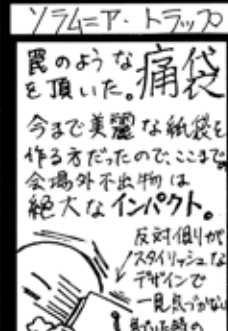 ソラムニア・トラップ
罠のような痛袋
を頂いた。
今まで美麗な紙袋を
作る方だったので、ここまで
会場外不出物は
絶大なインパクト。
反対側が
スタイリッシュな
デザインで
一見気づかない